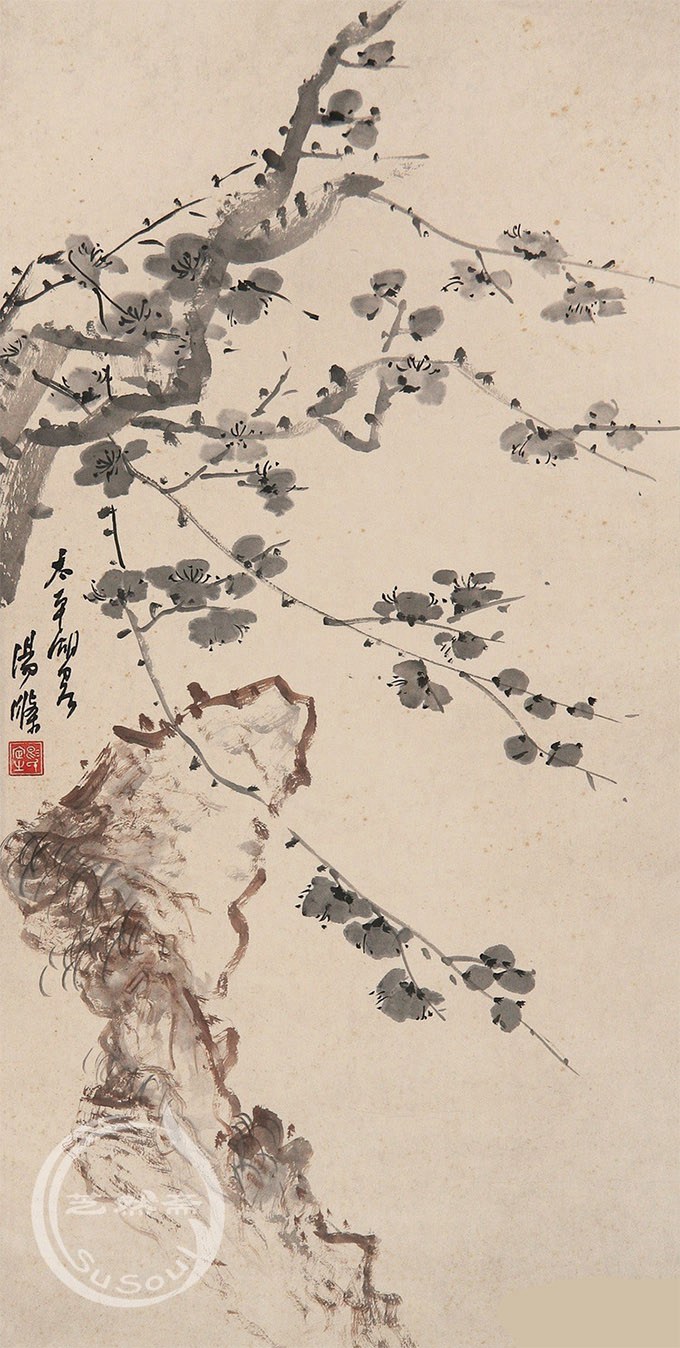 太平湖客
湯滌
艺然斋
SuSoul